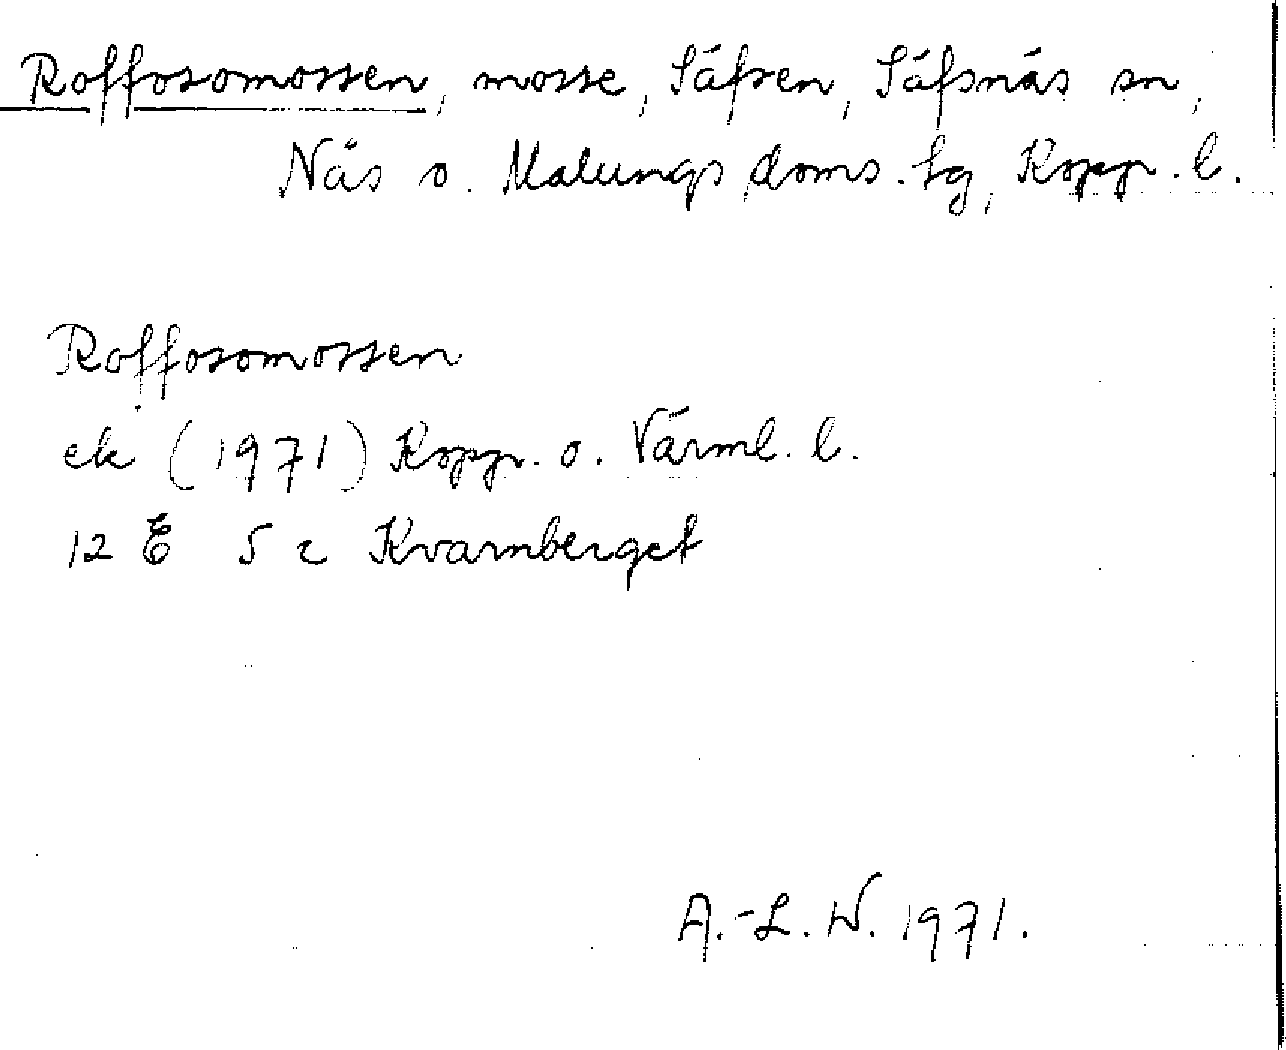 Roffosomossen, mosse, Säfsen, Säfsnäs sn,
Näs o. Malungs doms. hg, Kopp. l.
Roffosomossen
ek (1971) Kopp. o. Värml. l.
12 E 5 c Kvarnberget
A.-L. W. 1971.